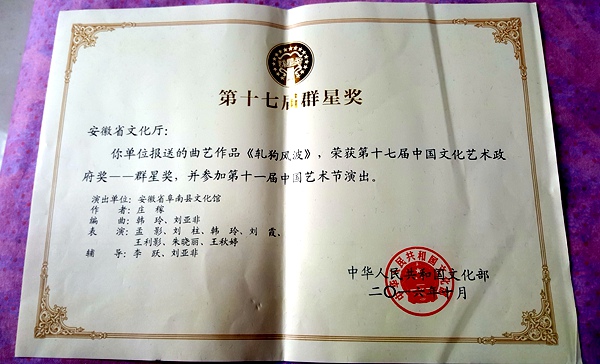 第十七届群星奖
安徽省文化厅：
你单位报送的曲艺作品《轧狗风波》，荣获第十七届中国文化艺术政
府奖——群星奖，并参加第十一届中国艺术节演出。
演出单位：安徽省阜南县文化馆
作 者：庄 稼
编 曲：韩 玲、刘亚非
表 演：孟 影、刘 柱、韩 玲、刘 霞、
王利影、朱晓丽、王秋婷
辅 导：李 跃、刘亚非
中华人民共和国文化部
二〇一六年十月
中华人民共和国文化部